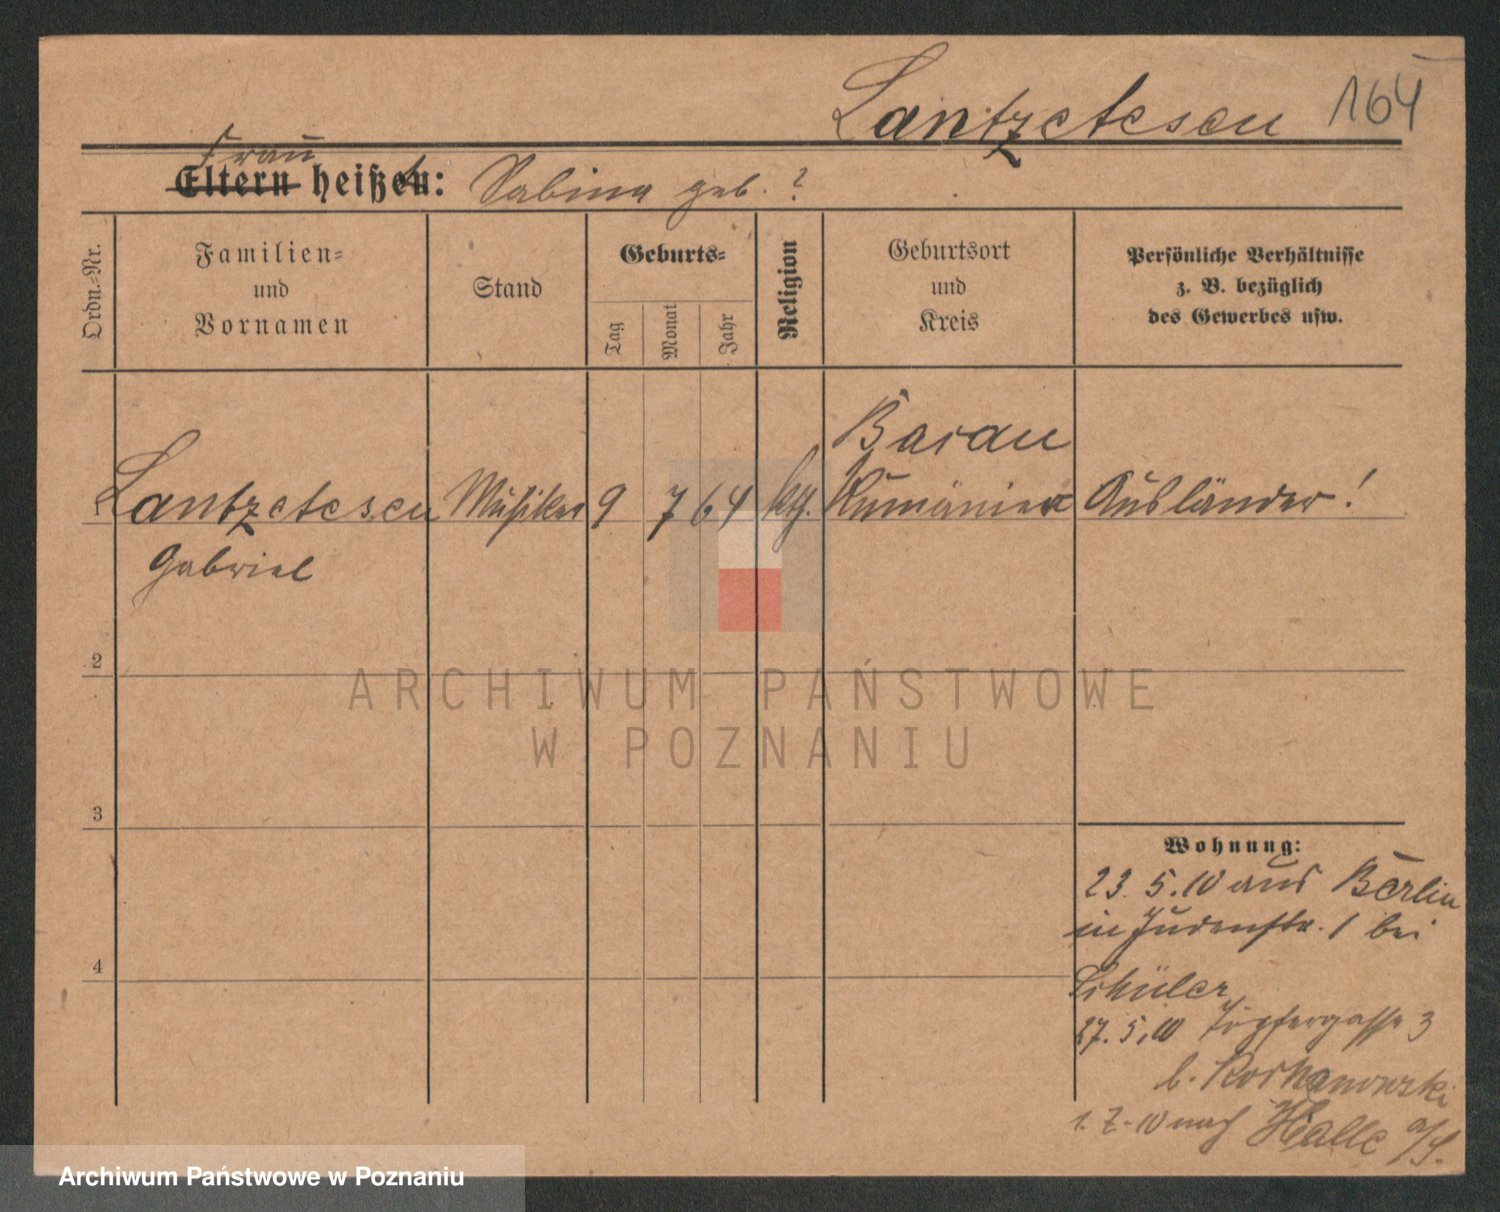 Lantzetescu 164
Frau
Eltern heißen: Sabina geb. ?
Ordn.-Nr.
Familien-
und
Vornamen
Stand
Geburts-
Tag
Monat
Jahr
Religion
Geburtsort
und
Kreis
Persönliche Verhältnisse
z. B. bezüglich
des Gewerbes usw.
1 Lantzetescu Musiker 9 7 64 ktj. Rumänien Ausländer!
Gabriel
2
3
4
Wohnung:
23. 5. 10 aus Berlin
in Judenstr. 1 bei
Schüler
27. 5. 10 Töpfergasse 3
b.
1. 7. 10 nach Halle a/S.
ARCHIWUM PAŃSTWOWE
W POZNANIU
Archiwum Państwowe w Poznaniu